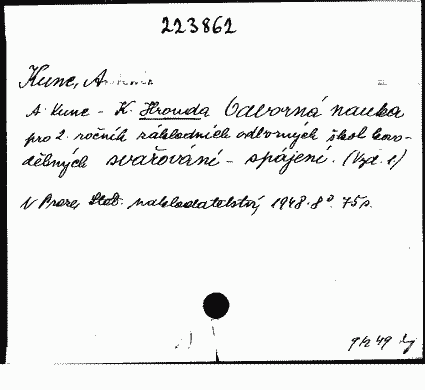 223862
Kunc, Antonín
A. Kunc - K. Hrouda Odborná nauka
pro 2. ročník základních odborných škol kovo-
dělných svařování - spájení. (Vyd. 1)
V Praze, Stát. nakladatelství 1948. 8° 75 s.
49